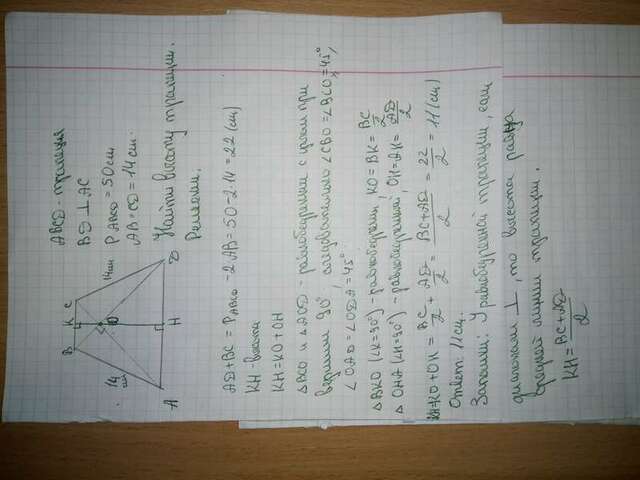 ABCD - трапеция
BD ⊥ AC
P ABCD = 50 см
AB = CD = 14 см
Найти высоту трапеции.
Решение.
B K C
14 см
14 см
O
A H D
AD + BC = P ABCD - 2 AB = 50 - 2·14 = 22 (см)
KH - высота
KH = KO + OH
△BCO и △AOD - равнобедренные с углом при
вершине 90°, следовательно ∠CBO = ∠BCO = 45°,
∠OAD = ∠ODA = 45°
△BKO (∠K = 90°) - равнобедрен, KO = BK = BC/2
△OHA (∠H = 90°) - равнобедренный, OH = AH = AD/2
KH = KO + OH = BC/2 + AD/2 = (BC + AD)/2 = 22/2 = 11 (см)
Ответ: 11 см.
Запомни: У равнобедренной трапеции, если
диагонали ⊥, то высота равна
средней линии трапеции.
KH = (BC + AD)/2